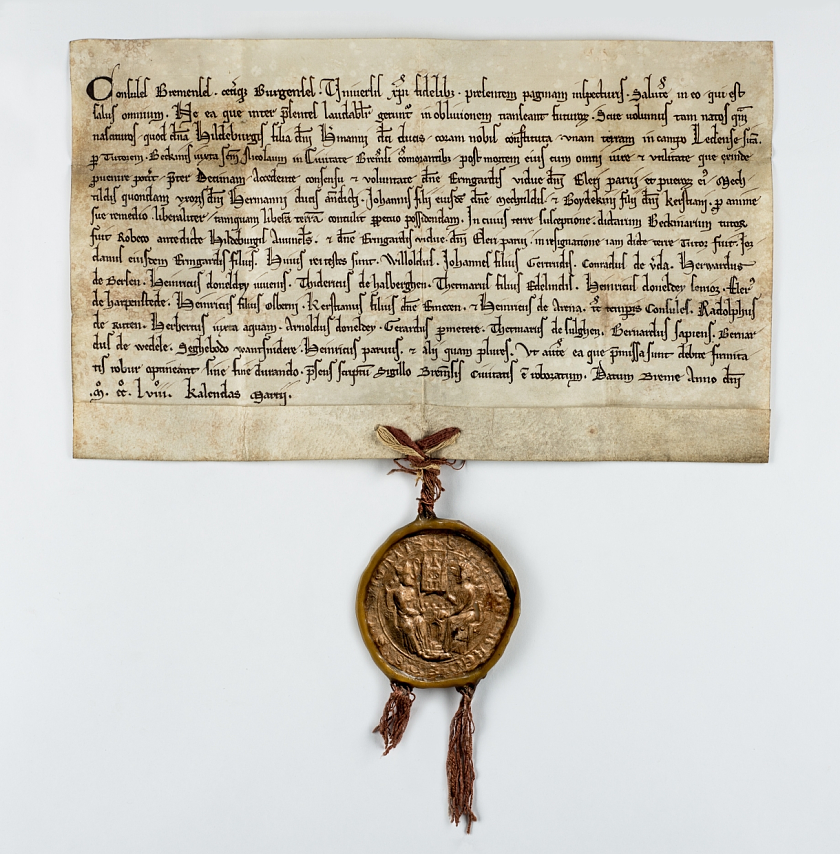 Consules Bremenses. ceteriq; Burgenses. Universis xpi fidelibz. presentem paginam inspecturis. Salute in eo qui est
salus omnium. Ne ea que inter psentes laudabilr gerunt in oblivionem transeant future. Scire volumus tam natos qm
nascituros quod dna Hildeburgis filia dni Hmanni dci ducis. coram nobis constituta. unam terram in campo Ledense sita.
p Tutorem. Beckinis iuxta scm Nicolaum in Civitate Brensi comorantibz. post mortem eius cum omni iure et utilitate que exinde
pvenire potit. pter Decimam. Accedente consensu et voluntate dne Ermgardis vidue dni Eleri parvi et pueroz ei Mech
tildis quondam uxoris dni Hermanni ducis andicti. Johannis filii eiusde dne mechtildis. et Boydekini filii dni Kerstiani. p anime
sue remedio liberaliter tamquam libera terra contulit ppetuo possidendam. In cuius terre susceptione. dictarum Beckinarum tutor
fuit Robeco antedicte Hildeburgis Avunculs. et dne Ermgardis vidue dni Eleri parvi. in resignatione iam dicte terre Tutor fuit. Jor
danus eiusdem Ermgardis filius. Huius rei testes sunt. Willoldus. Johannes filius Gertrudis. Conradus de vda. Herwardus
de Bersen. Heinricus doneldey iuvenis. Thidericus de halberghen. Thetmarus filius Edelindis. Heinricus doneldey senior. Eler
de harpenstede. Heinricus filius olberni. Kerstianus filius dne Emeten. et Heinricus de Arena. tc tempis Consules. Radolphus
de ruten. Herbertus iuxta aquam. Arnoldus doneldey. Gerardus pmetete. Thetmarus de sulghen. Bernardus sapiens. Bernar
dus de wedele. Seghebodo wantsnidere. Heinricus parvus. et alii quam plures. Ut aute ea que pmissa sunt debite firmita
tis robur optineant sine fine durando. psens scriptu Sigillo Bremsis Civitatis e roboratum. Datum Breme Anno dni
.m. cc. Lviii. Kalendas Marcii.